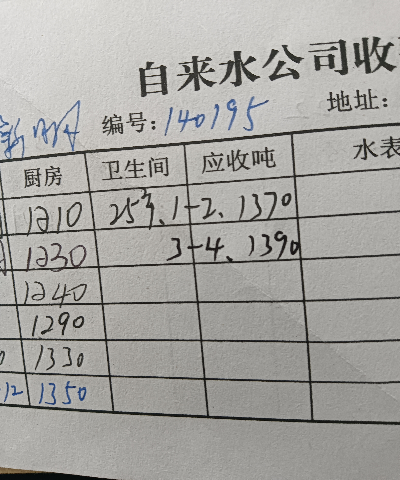 自来水公司收
编号:140195 地址:
厨房 卫生间 应收吨 水表
1210 25 1-2、1370
1230 3-4、1390
1240
1290
1330
12 1350